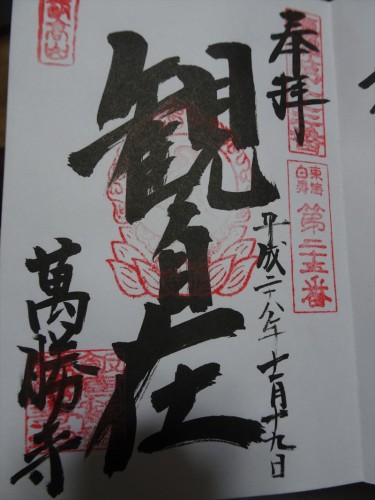 奉拝
東海
白寿
第二十五番
平成二八年 十二月十九日
観自在
萬勝寺